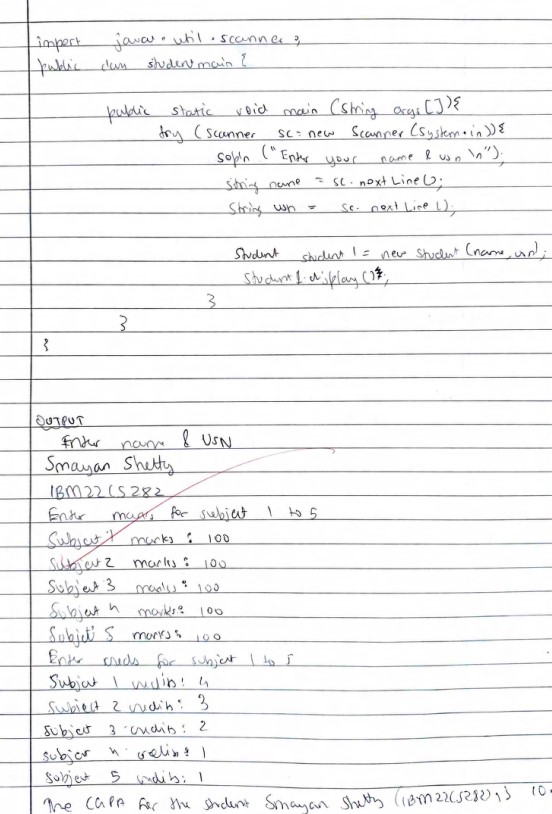 import java.util.scanner;
public class studentmain {
public static void main (String args[]){
try (Scanner sc = new Scanner (System.in)){
sopln ("Enter your name & usn \n");
String name = sc.nextLine();
String usn = sc.nextLine();
Student student1 = new Student (name, usn);
Student1.display();
}
}
}
OUTPUT
Enter name & USN
Smayan Shetty
1BM22CS282
Enter marks for subject 1 to 5
Subject 1 marks : 100
Subject 2 marks : 100
Subject 3 marks : 100
Subject 4 marks : 100
Subject 5 marks : 100
Enter creds for subject 1 to 5
Subject 1 credits: 4
Subject 2 credits: 3
subject 3 credits: 2
subject 4 credits: 1
subject 5 credits: 1
The CGPA for the student Smayan Shetty (1BM22CS282) is 10.